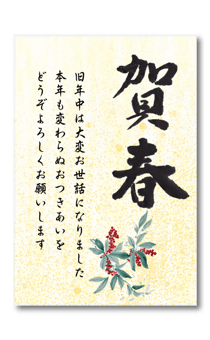 賀春
旧年中は大変お世話になりました
本年も変わらぬおつきあいを
どうぞよろしくお願いします